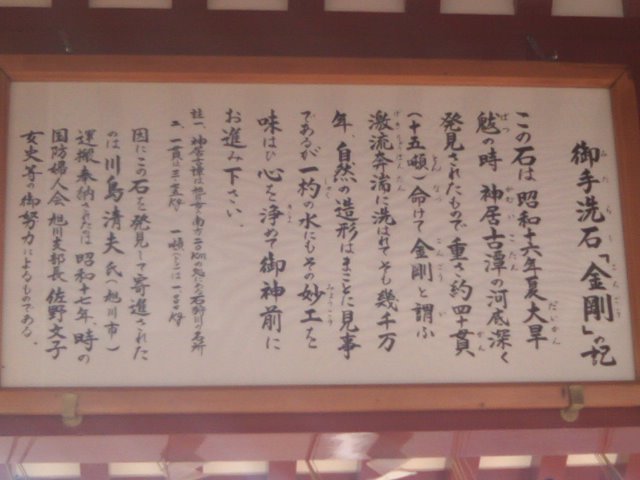 御手洗石「金剛」の記
この石は昭和十六年夏大旱
魃の時 神居古潭の河底深く
発見されたもので重さ約四千貫
(十五噸)命けて 金剛と謂ふ
激流奔湍に洗はれてそも幾千万
年、自然の造形はまことに見事
であるが一杓の水にもその妙工を
味はひ心を浄めて御神前に
お進み下さい。
註一、神居古潭は 南方 Kmの処 石狩川 名所
二、一貫は三・七五Kg 一噸(トン)は Kg
因にこの石を発見して寄進された
のは川島清夫氏(旭川市)
運搬奉納されたのは昭和十七年、時の
国防婦人会旭川支部長 佐野文子
女史等の御努力によるものである。